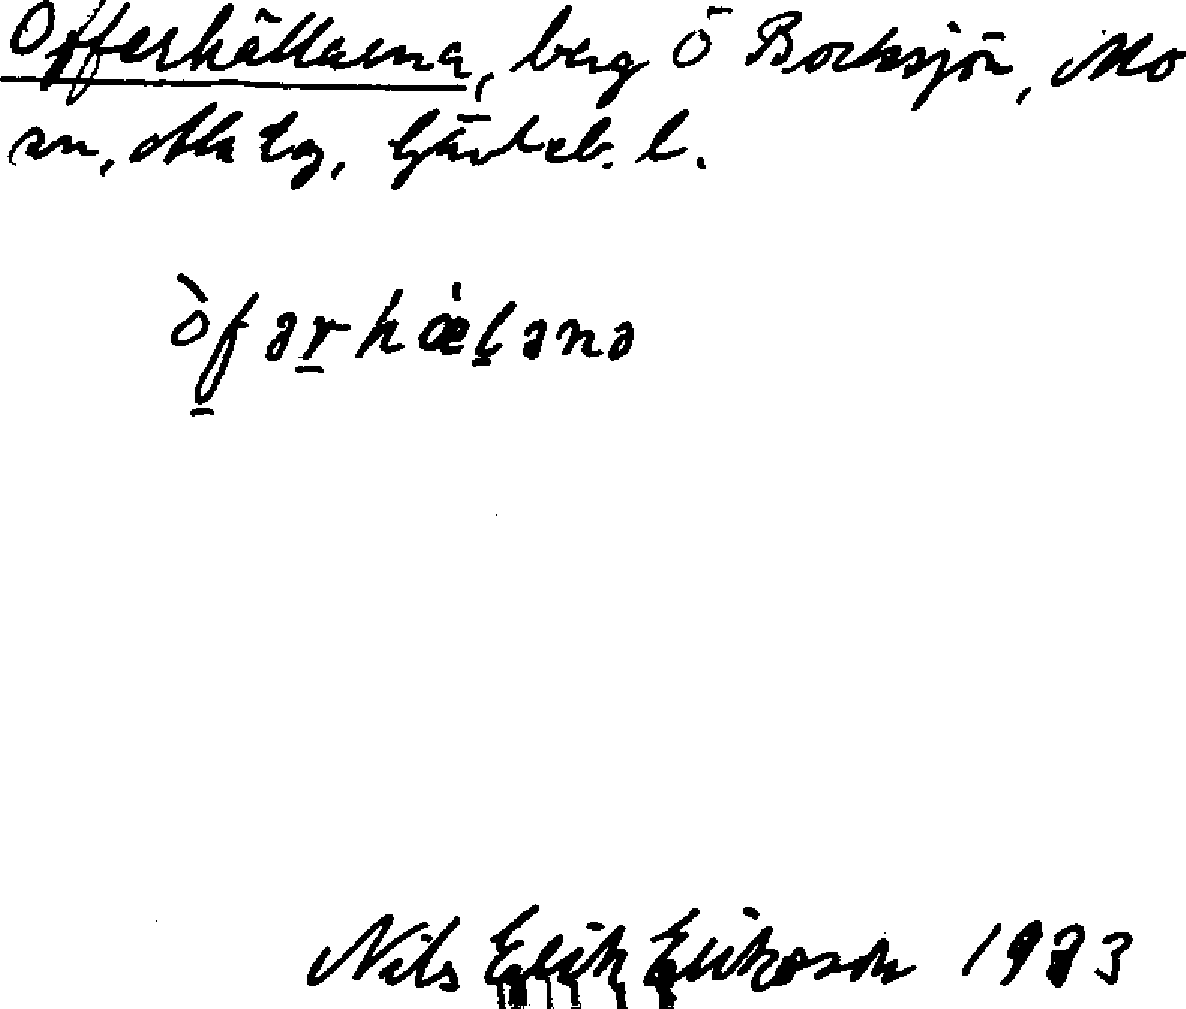 Offerhällarna, berg Ö Bocksjön, Mo
sn, Ala tg, Gävleb. l.
òfər̲hæ̀l̲ənə
Nils Erik Eriksson 1973